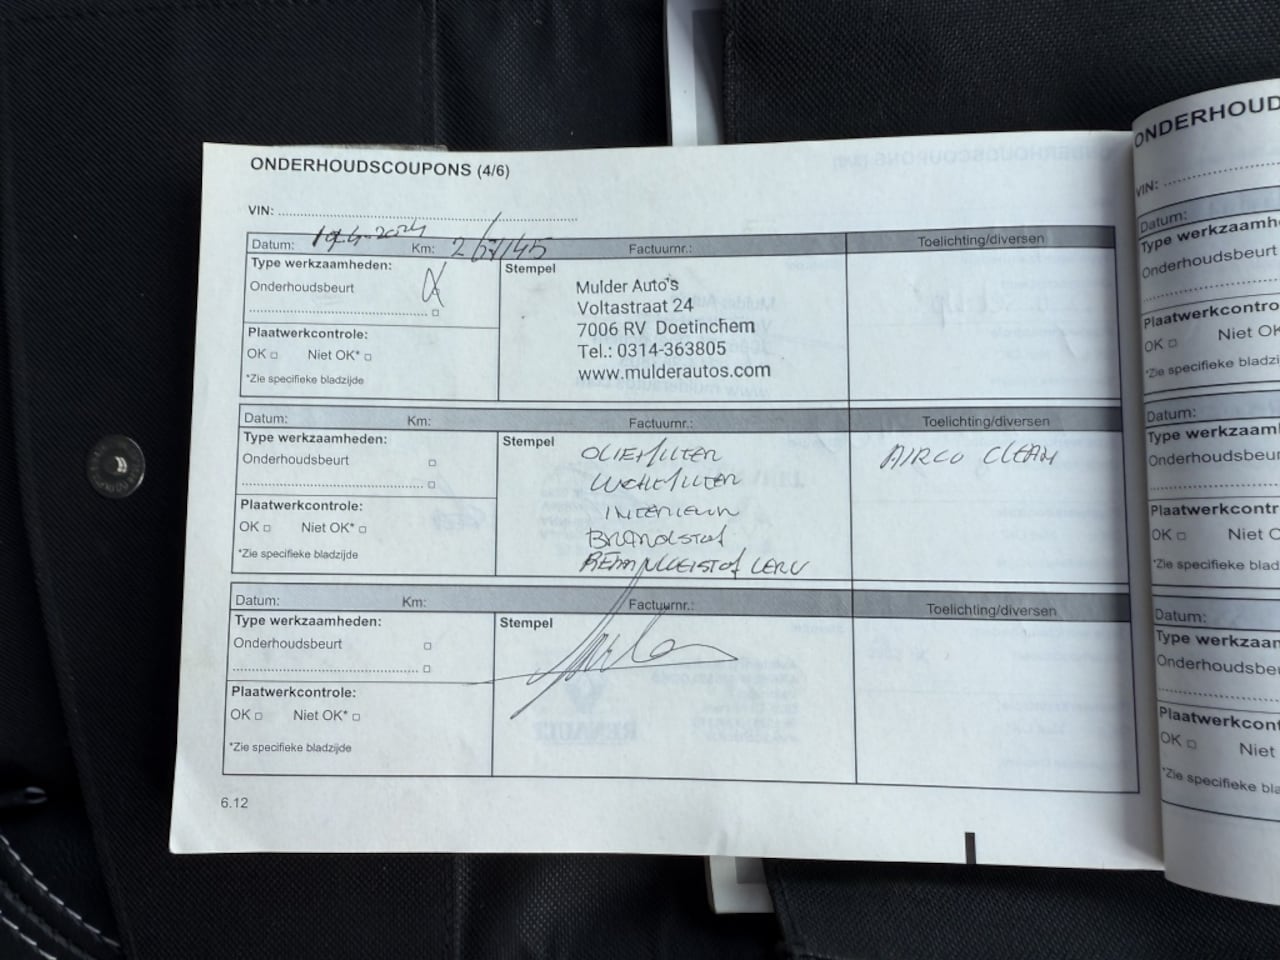 ONDERHOUDSCOUPONS (4/6)
VIN:
Datum: 19-4-2024 Km: Factuurnr.: Toelichting/diversen
Type werkzaamheden:
Onderhoudsbeurt
Stempel
Mulder Auto's
Voltastraat 24
7006 RV Doetinchem
Tel.: 0314-363805
www.mulderautos.com
Plaatwerkcontrole:
OK Niet OK*
*Zie specifieke bladzijde
Datum: Km: Factuurnr.: Toelichting/diversen
Type werkzaamheden:
Onderhoudsbeurt
Stempel
OLIEFILTER
LUCHTFILTER
INTERIEUR
BRANDSTOF
REMVLOEISTOF
AIRCO CLEAN
Plaatwerkcontrole:
OK Niet OK*
*Zie specifieke bladzijde
Datum: Km: Factuurnr.: Toelichting/diversen
Type werkzaamheden:
Onderhoudsbeurt
Stempel
Plaatwerkcontrole:
OK Niet OK*
*Zie specifieke bladzijde
6.12
ONDERHOUD
VIN:
Datum:
Type werkzaamhe
Onderhoudsbeurt
Plaatwerkcontro
OK Niet OK
*Zie specifieke bladzi
Datum:
Type werkzaam
Onderhoudsbeur
Plaatwerkcontr
OK Niet O
*Zie specifieke blad
Datum:
Type werkzaan
Onderhoudsbe
Plaatwerkcont
OK Niet
*Zie specifieke bla